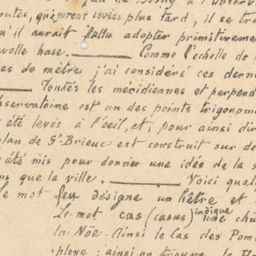 de Bosny à l'Observ
outes, qu'éprouvées plus tard, il se tro
qu'il aurait fallu adopter primitivemen
velle base. Comme l'échelle de
es de mètre j'ai considéré ces derni
Toutes les méridiennes et perpend
bservatoire est un des points trigonomé
été levés à l'œil, et, pour ainsi dir
plan de St Brieuc est construit sur de
été mis pour donner une idée de la s
que la ville. Voici quelq
e mot feu désigne un hêtre et
Le mot cas (casus) indique une chû
la Nöe. Ainsi le Cas des Pom
ploye: ainsi on trouve le